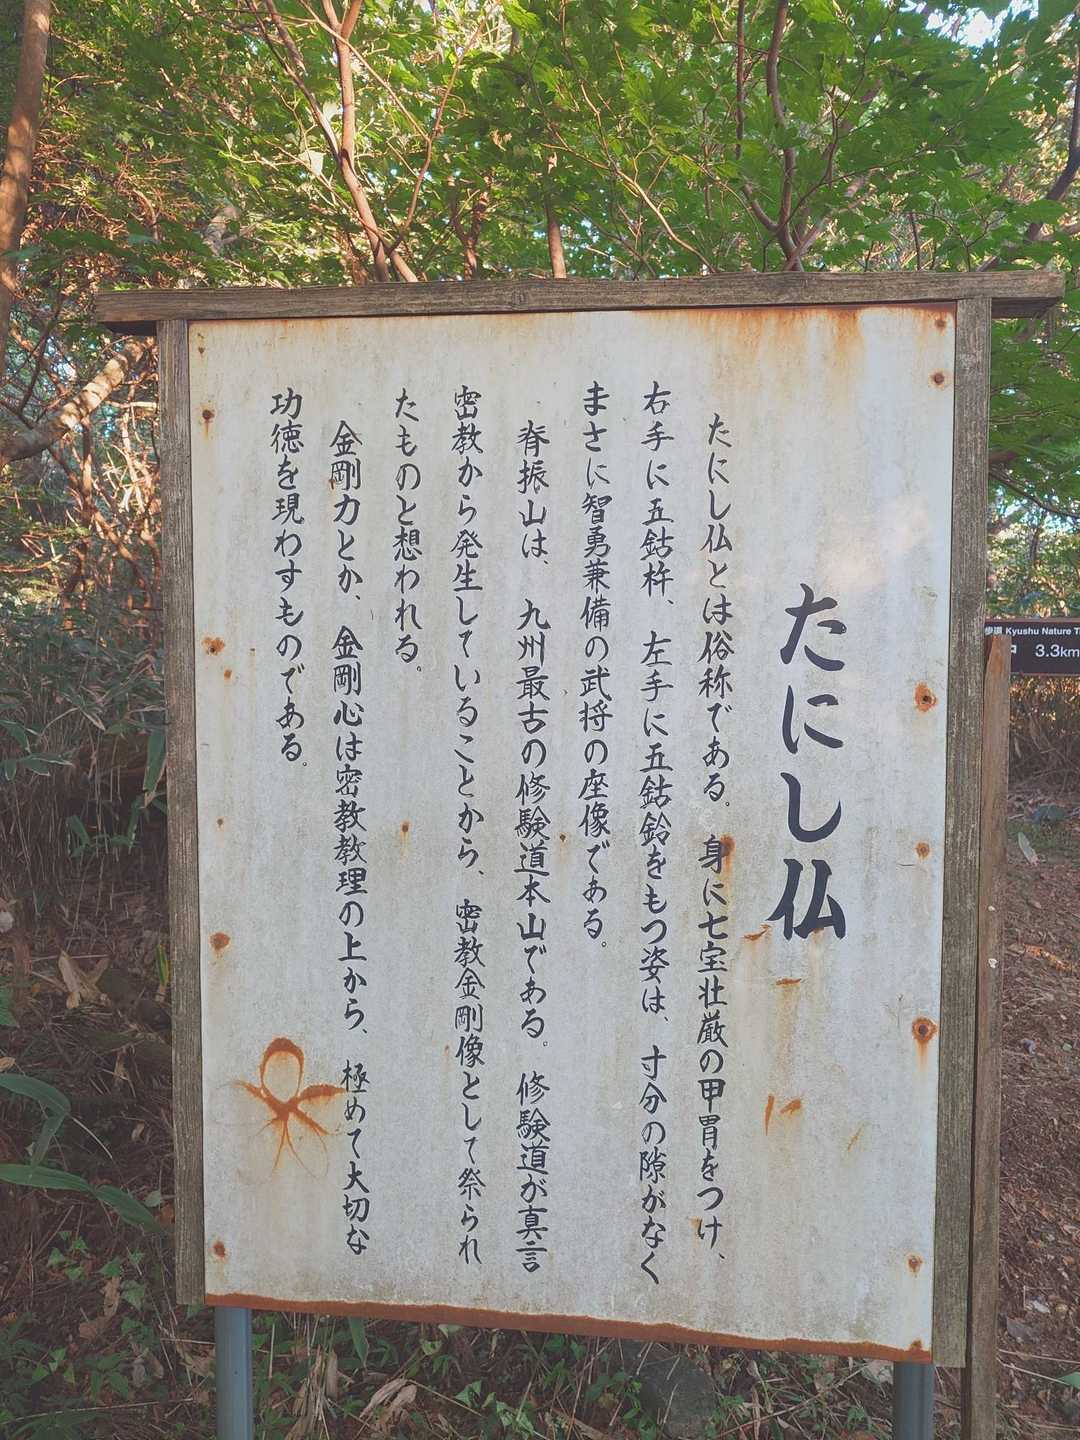 たにし仏
たにし仏とは俗称である。身に七宝壮厳の甲冑をつけ、
右手に五鈷杵、左手に五鈷鈴をもつ姿は、寸分の隙がなく
まさに智勇兼備の武将の座像である。
脊振山は、九州最古の修験道本山である。修験道が真言
密教から発生していることから、密教金剛像として祭られ
たものと想われる。
金剛力とか、金剛心は密教教理の上から、極めて大切な
功徳を現わすものである。
歩道 Kyushu Nature T
3.3km